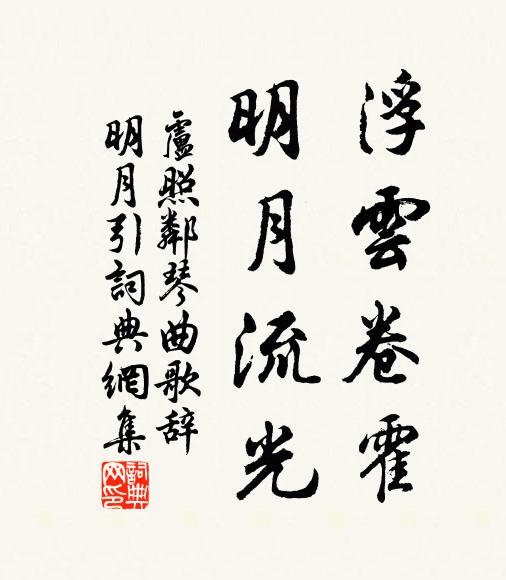 浮雲卷霍
明月流光
盧照鄰琴曲歌辞
明月引詞典網集
詞典网印